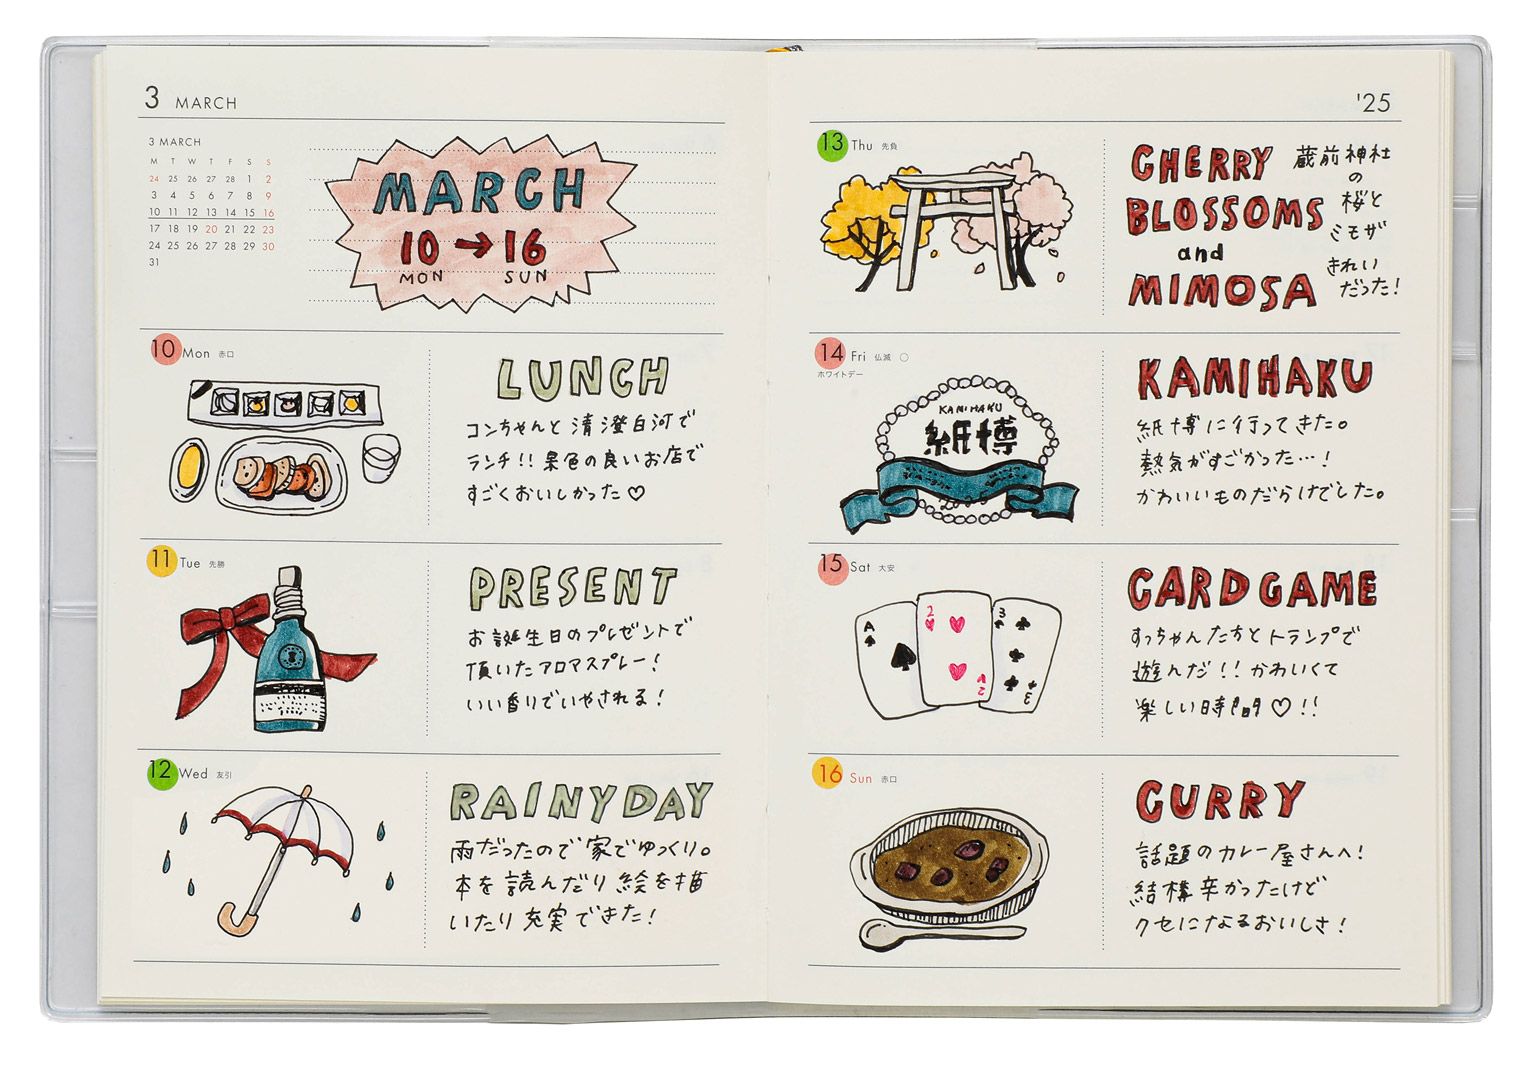 3 MARCH
3 MARCH
M T W T F S S
24 25 26 27 28 1 2
3 4 5 6 7 8 9
10 11 12 13 14 15 16
17 18 19 20 21 22 23
24 25 26 27 28 29 30
31
MARCH
10 → 16
MON SUN
10 Mon 赤口
LUNCH
コンちゃんと清澄白河で
ランチ!! 景色の良いお店で
すごくおいしかった♡
11 Tue 先勝
PRESENT
お誕生日のプレゼントで
頂いたアロマスプレー!
いい香りでいやされる!
12 Wed 友引
RAINY DAY
雨だったので家でゆっくり。
本を読んだり絵を描
いたり充実できた!
'25
13 Thu 先負
CHERRY
BLOSSOMS
and
MIMOSA
蔵前神社
の
桜と
ミモザ
きれい
だった!
14 Fri 仏滅 ○
ホワイトデー
KAMIHAKU
紙博
KAMIHAKU
紙博に行ってきた。
熱気がすごかった…!
かわいいものだらけでした。
15 Sat 大安
A
2
2
3
3
CARD GAME
すっちゃんたちとトランプで
遊んだ!! かわいくて
楽しい時間♡!!
16 Sun 赤口
CURRY
話題のカレー屋さんへ!
結構辛かったけど
クセになるおいしさ!